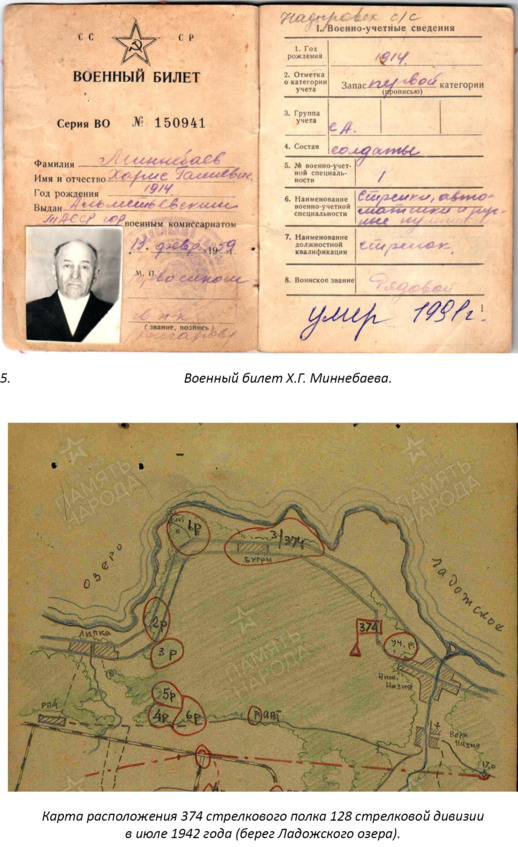 СС СР
ВОЕННЫЙ БИЛЕТ
Серия ВО № 150941
Фамилия Миннебаев
Имя и отчество Харис
Год рождения 1914.
Выдан Альметьевским
ТАССР военным комиссариатом
13 февр 1959
М. П.
(звание, подпись)
с/с
I. Военно-учетные сведения
1. Год рождения 1914.
2. Отметка о категории учета Запас первой категории
(прописью)
3. Группа учета СА.
4. Состав солдаты
5. № военно-учетной специальности 1
6. Наименование военно-учетной специальности Стрелки, автоматчики и
7. Наименование должностной квалификации стрелок.
8. Воинское звание Рядовой
умер 1991г.
1
5. Военный билет Х.Г. Миннебаева.
ПАМЯТЬ НАРОДА
ПАМЯТЬ НАРОДА
ПАМЯТЬ НАРОДА
ОЗЕРО
ЛАДОЖСКОЕ
1р
3/374
БУГРЫ
2р
ЛИПКА
3р
374
уч. р.
5р
4р
6р
РП4
Карта расположения 374 стрелкового полка 128 стрелковой дивизии
в июле 1942 года (берег Ладожского озера).